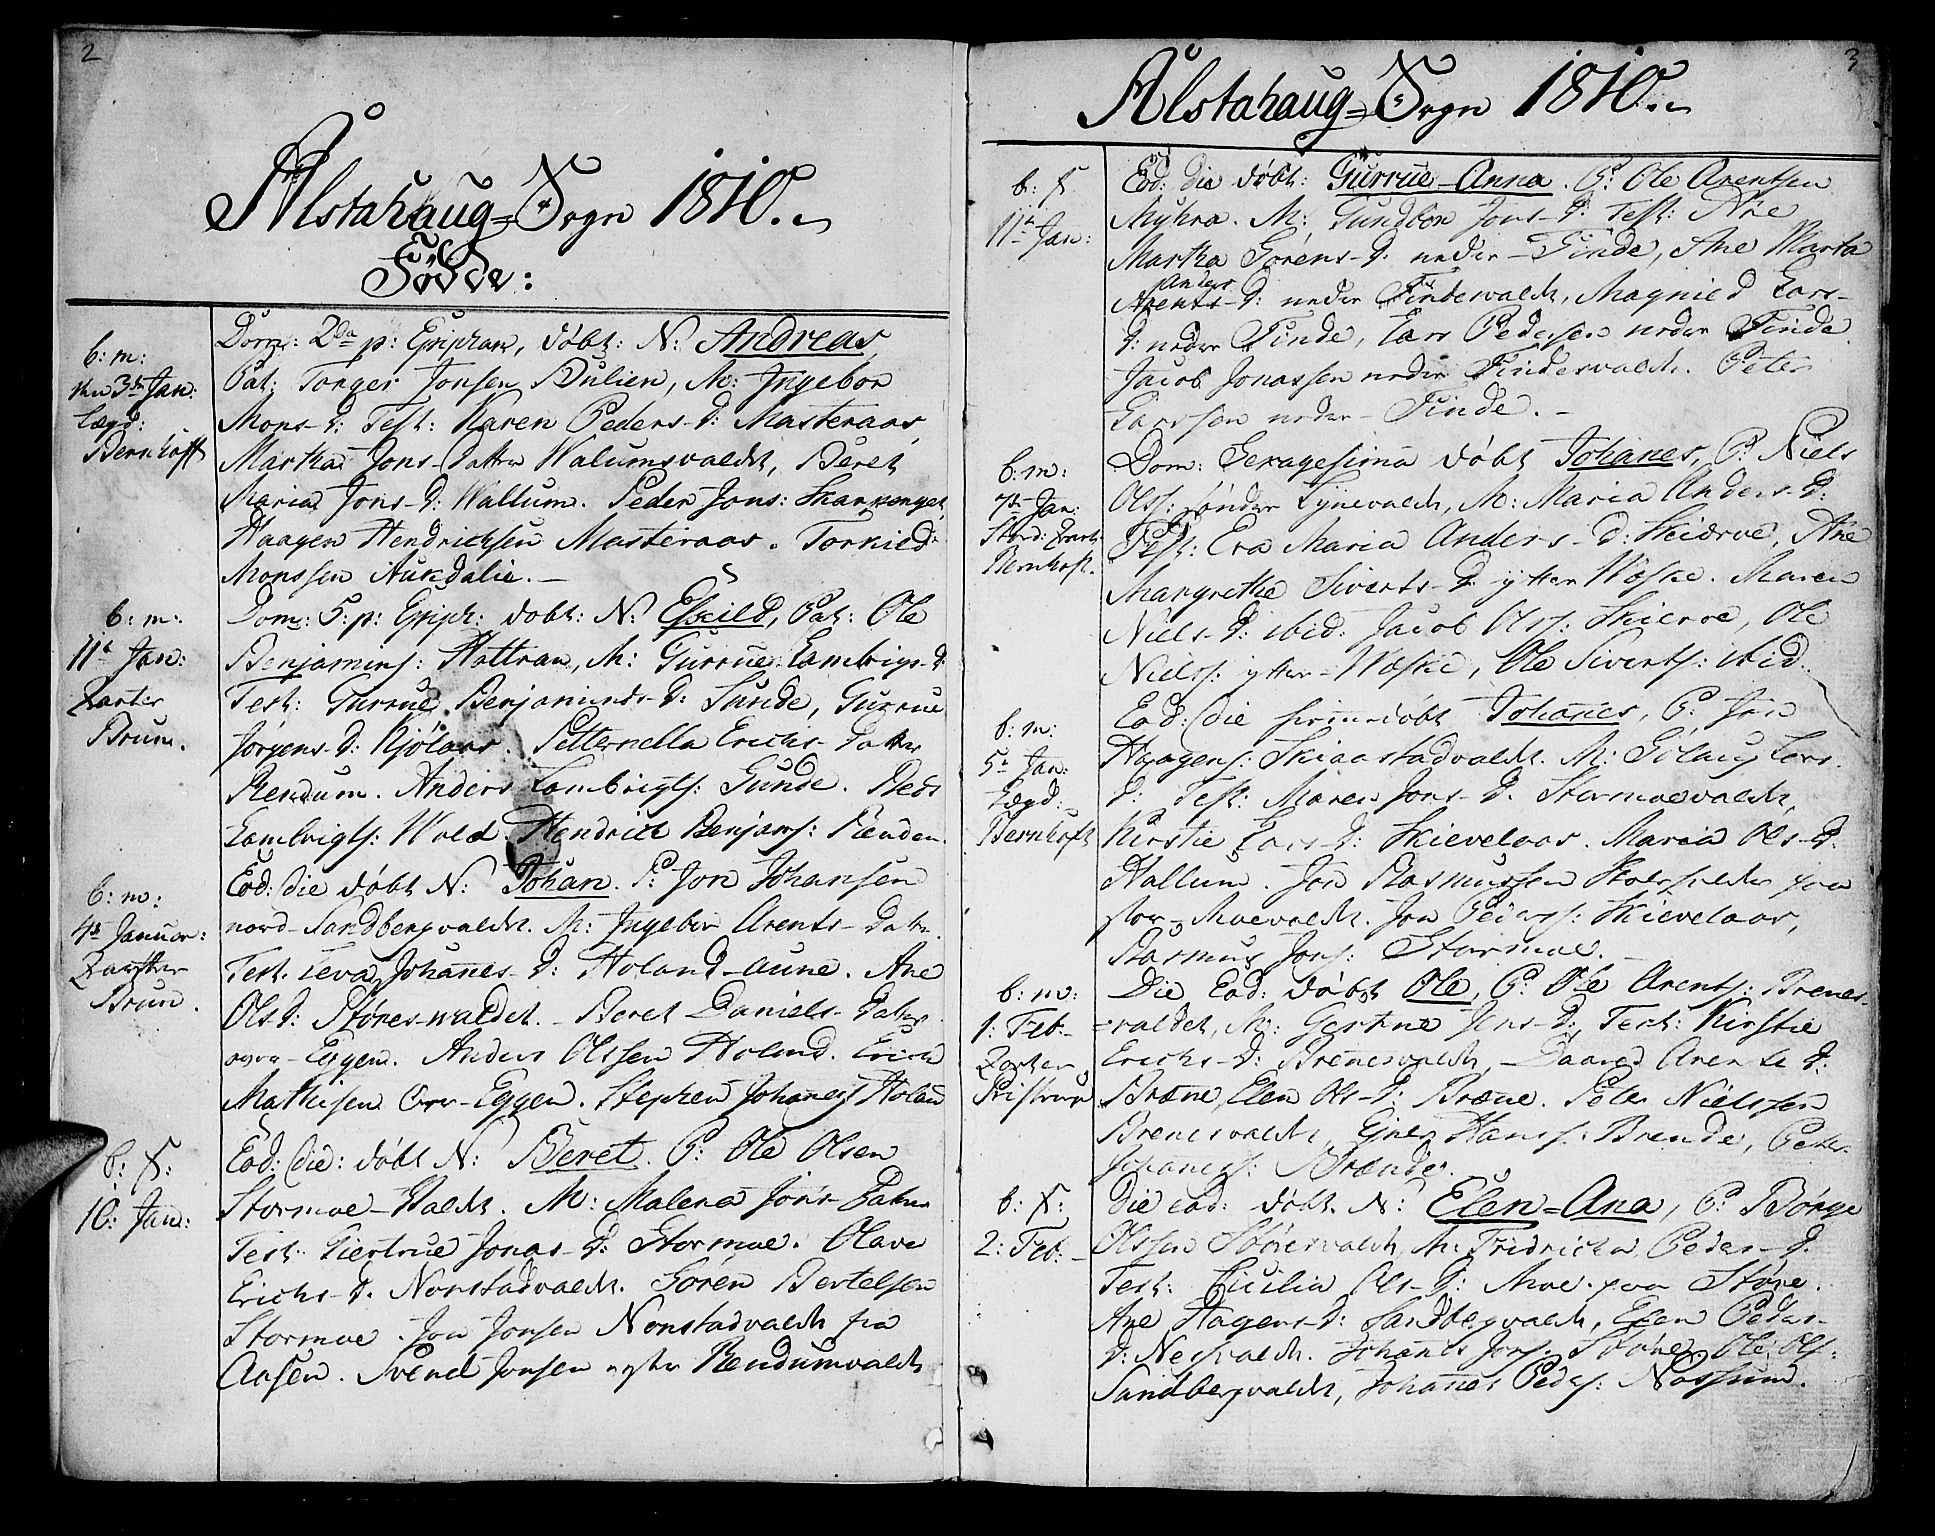 2
Alstahaug=Sogn 1810.
Fødde:
b: m:
den 3de Jan:
Lægd:
Bernhoft
Dom: 2da p: Epiphan, døbt: N: Andreas,
Pat: Torger Jonsen Bulien, M: Ingebor
Mons-D: Test: Karen Peders-D: Masteraas,
Martha Jons-Datter Walumsvaldet, Beret
Maria Jons-D: Wallum. Peder Jons:
Haagen Hendrichsen Masteraas. Torkield
Monssen Aukdalie.
b: m:
11te Jan:
Qarter
Brun.
Dom: 5: p: Epiph: døbt: N: Eskild, Pat: Ole
Benjamins: Hattran, M: Gurrue Lambrigs-D:
Test: Gurrue Benjaminds-D: Sunde, Gurrue
Jørgens-D: Kjølaas. Petternella Erichs-Datter
Rendum. Anders Lambrigts: Sunde. Peder
Lambrigts: Wald. Hendrich Benjams:
b: m:
4de Januar:
Qarter
Brun.
Eod: die døbt N: Johan. P: Jon Johansen
nord-Sandbergvaldet. M: Ingebor Arents-Datter
Test. Eva Johanes-D: Holand-aune. Ane
Ols-D: Støres-waldet. Beret Daniels-Datter
over-Eggen. Anders Olssen Holand. Erich
Mathisen Over-Eggen. Stephen Johanes: Holan
b: F:
10: Jan:
Eod: die: døbt N: Beret. P: Ole Olsen
Stormoe-Valdet. M: Malena Jons-Datter
Test. Giertrue Jonas-D: Stormoe. Olava
Erichs-D. Nonstadvaldet. Søren Bertelsen
Stormoe. Jon Jonsen Nonstadvaldet fra
Aasen. Svend Jonsen Rendumvaldet
3
Alstahaug=Sogn 1810.
b: F.
11te Jan:
Eod: die døbt: Gurrue-Anna. P: Ole Arentsen
Myhra. M: Gundbor Jons-D: Test: Ane
Martha Sørens-D: neder-Tinde, Ane Marta
Anders
Arents-D: neder Tindevaldet, Magnild Lars-
D: neder Tinde, Lars Pedersen neder Tinde
Jacob Jonassen neder Tindesvaldet. Peter
Larssen neder-Tinde.
b: m:
7de Jan:
Bernhoft.
Dom: Sexagesima døbt Johanes, P: Niels
Olss: sønder Lynevaldet, M: Maria Anders-D:
Test: Eva Maria Anders-D: Skierve, Ane
Margretha Siverts-D: ytter Woske. Maren
Niels-D: ibid: Jacob Olss: Skierve, Ole
Nielss: ytter-Woske, Ole Siverts: ibid.
b: m:
5te Jan:
Lægd:
Bernhoft
Eod: die hiemdøbt Johanes, P: Jon
Haagens: Skiaastadvaldet. M: Gølaug Lars-
D: Test: Maren Jons-D. Stormoevaldet,
Kirstie Lars-D: Skievelaas. Maria Ols-D:
Hallum. Jon Rasmussen Skoleholder paa
stor-Moevaldet. Jon Peders: Skievelaas,
Rasmus Jons: Stormoe.
b: m:
1: Feb:
Qarter
Pristrup
Die Eod: døbt Ole, P: Ole Arents: Brenes-
=valdet, M: Gertrue Jens-D: Test: Kirstie
Erichs-D: Brenesvaldet, Daared Arents D:
Bræne, Elen Ols-D: Bræne. Peter Nielssen
Brenesvaldet, Hans: Brende, Peter
Johaness: Brænde.
b: F:
2: Feb:
Die eod: døbt. N: Elen=Ana, P: Børge
Olssen Støresvaldet, M: Fridricha Peders-D.
Test: Cicilia Ols-D: Moe paa Støre.
Ane Hagens-D: Sandbergvaldet, Elen Peders-
D: Nesvaldet. Johanes Jons: Støre, Ole Ols:
Sandbergvaldet, Johanes Peders: Nossum.